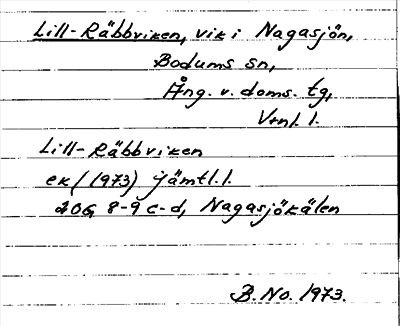 Lill-Räbbviken, vik i Nagasjön,
Bodums sn,
Ång. v. doms. tg,
Vrnl. l.
Lill-Räbbviken
ek (1973) Jämtl. l.
20G 8-9 c-d, Nagasjökälen
B. No. 1973.